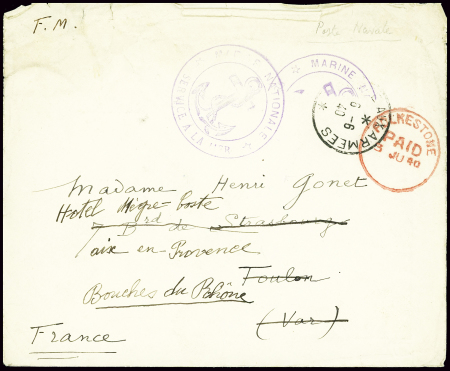 F. M.
Poste Navale
MARINE NATIONALE
SERVICE A LA MER
MARINE
AUX ARMEES
6-6
40
FOLKESTONE
PAID
3 JU 40
Madame Henri Gonet
Hotel Nègre-Coste
7 Brd de Strasbourg
aix en-Provence
Toulon
Bouches du Rhône
(Var)
France